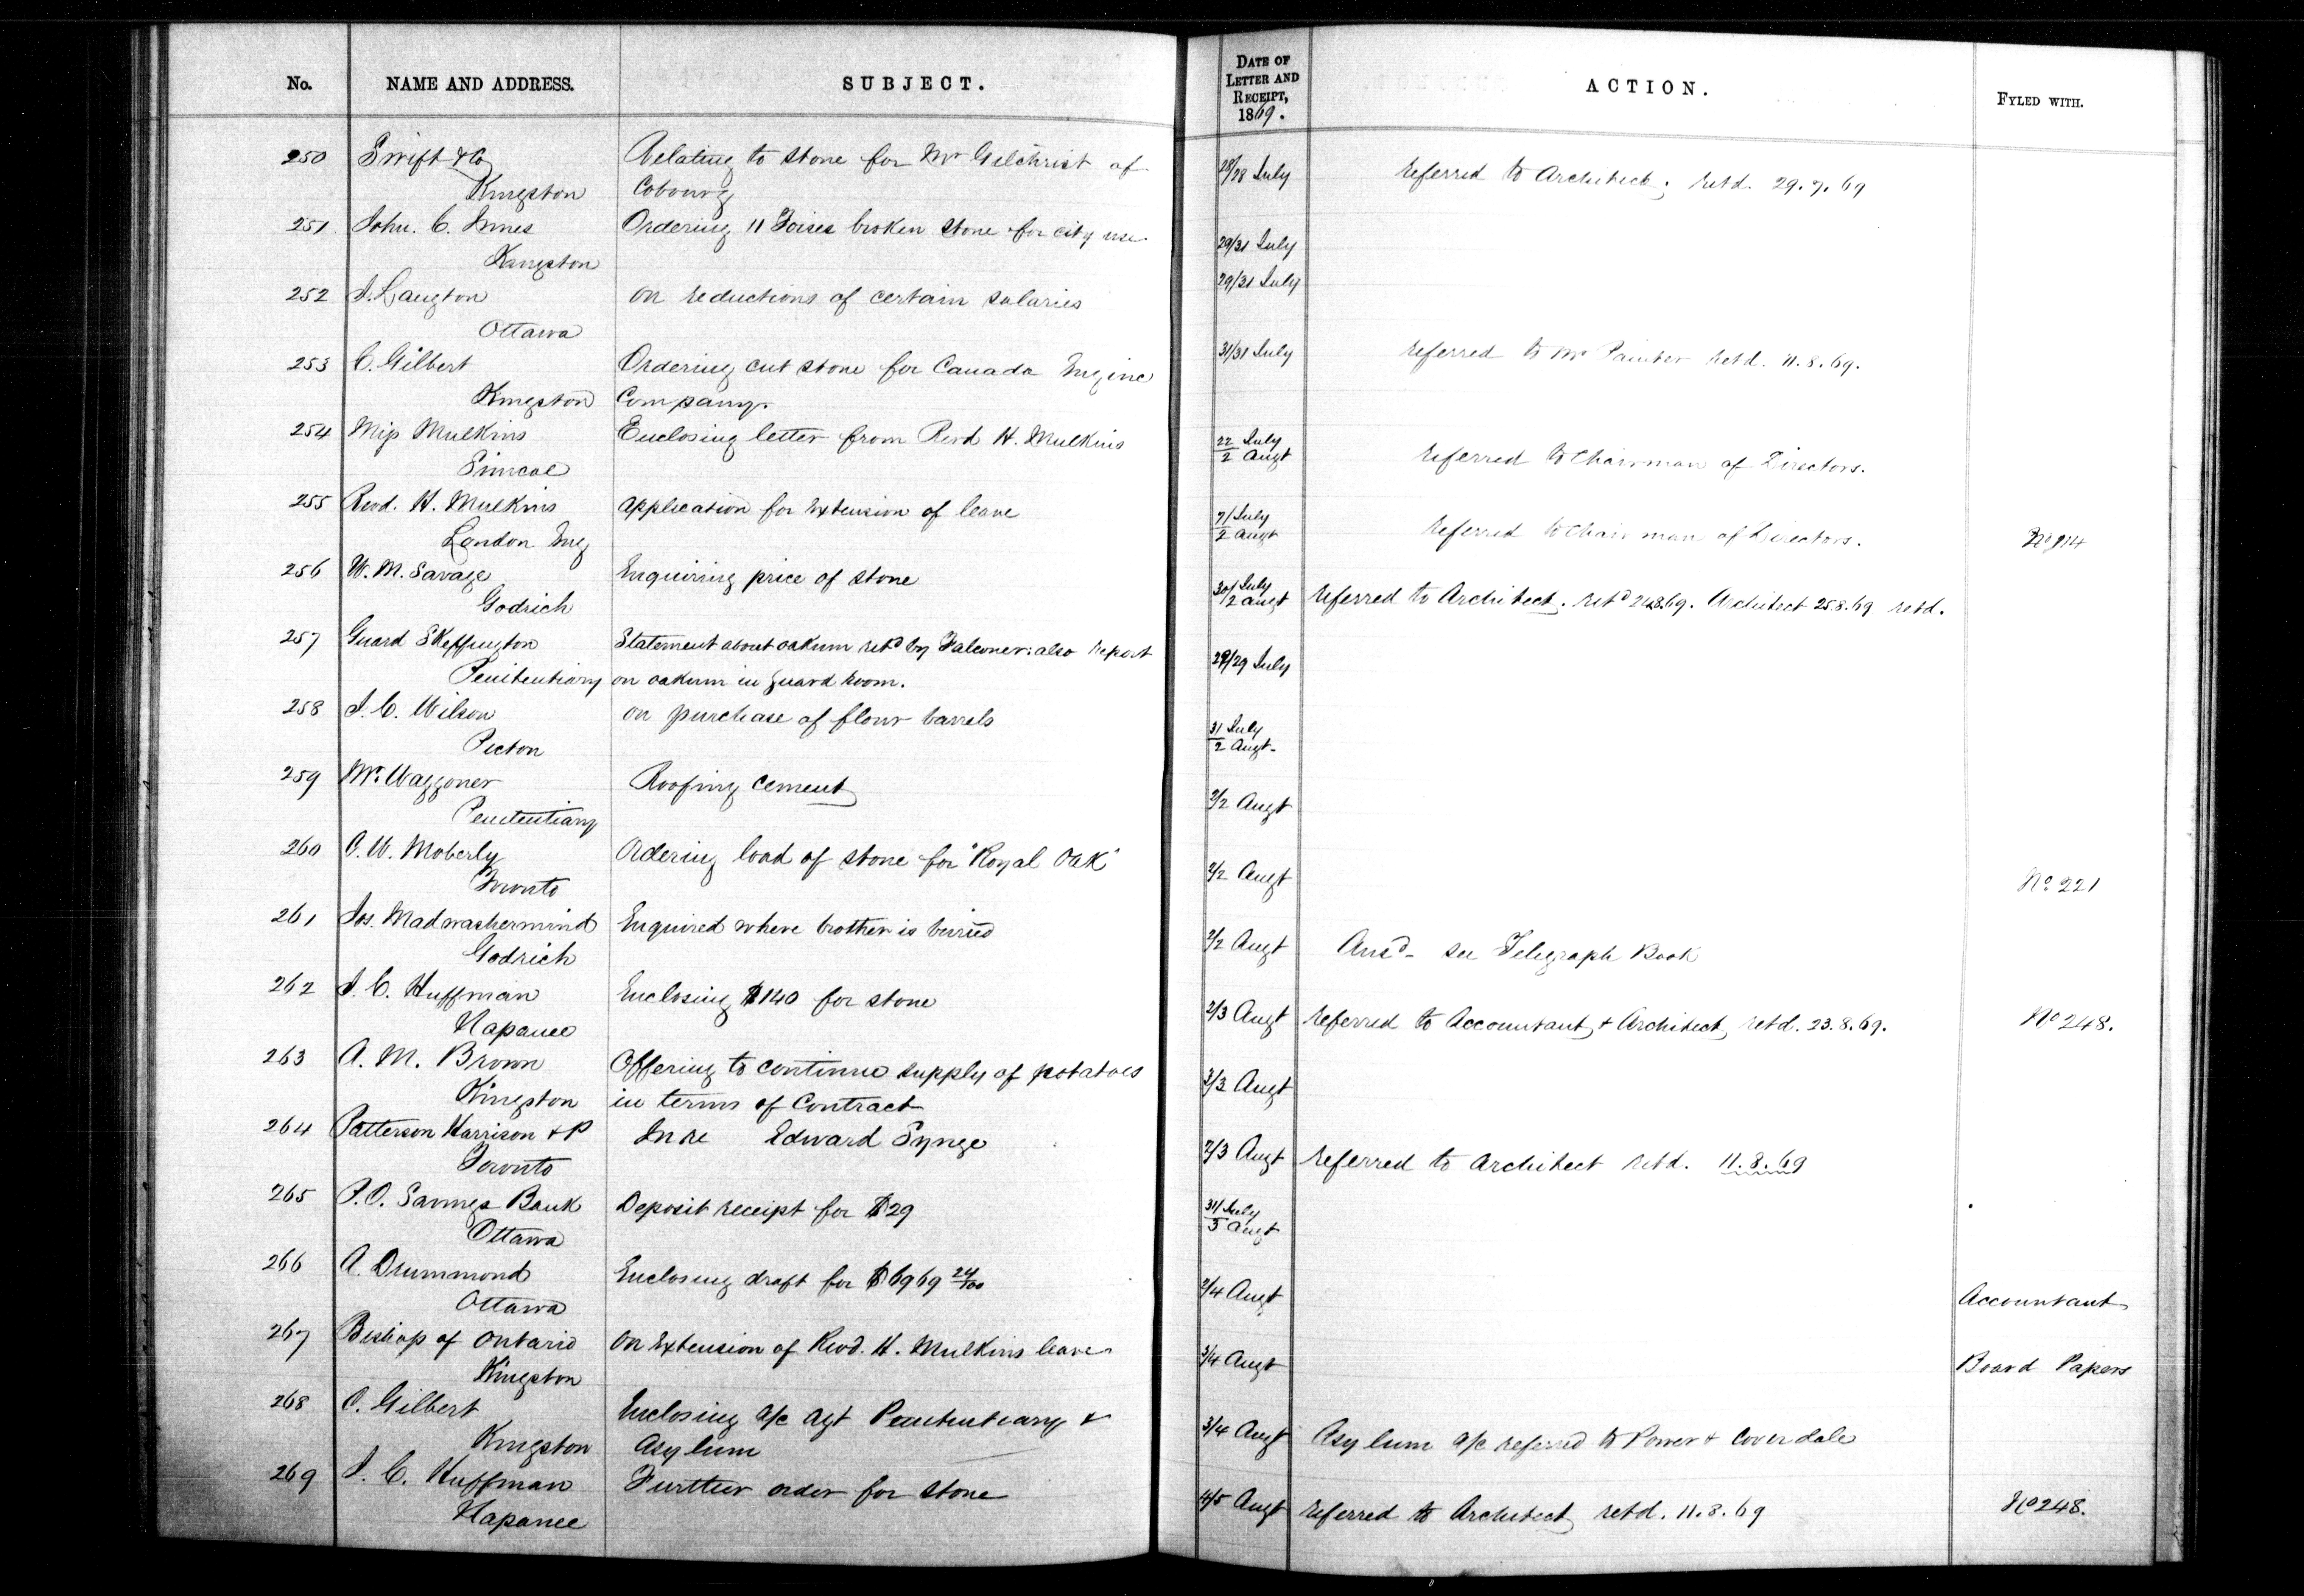 No. NAME AND ADDRESS. SUBJECT. DATE OF LETTER AND RECEIPT, 1869. ACTION. FYLED WITH.
250 Swift & Co Relating to stone for Mr Gilchrist of 28/28 July referred to Architect; retd. 29.7.69
Kingston Cobourg
251 John. C. Innes Ordering 11 Toises broken stone for city use 29/31 July
Kingston
252 J. Langton on reductions of certain salaries 29/31 July
Ottawa
253 C. Gilbert Ordering cut stone for Canada Engine 31/31 July referred to Mr Painter retd. 11.8.69.
Kingston Company.
254 Miss Mulkins Enclosing letter from Revd H. Mulkins 22 July / 2 Augt referred to Chairman of Directors.
Simcoe
255 Revd. H. Mulkins application for extension of leave 7/ July / 2 Augt referred to Chairman of Directors. No 214
London Eng
256 W. M. Savage Enquiring price of stone 30/ July / 2 Augt referred to Architect. retd 24.8.69. Architect 25.8.69 retd.
Godrich
257 Guard Skeffington Statement about oakum retd by Falconer: also report 29/29 July
Penitentiary on oakum in guard room.
258 J. C. Wilson on purchase of flour barrels 31 July / 2 Augt
Picton
259 Mr. Waggoner Roofing cement 2/2 Augt
Penitentiary
260 C. W. Moberly Ordering load of stone for "Royal Oak" 2/2 Augt No 221
Toronto
261 Jos. Madwashermind Enquired where brother is burried 2/2 Augt Ansd - see Telegraph Book
Godrich
262 J. C. Huffman Enclosing $140 for stone 2/3 Augt referred to Accountant & Architect retd. 23.8.69. No 248.
Napanee
263 A. M. Brown Offering to continue supply of potatoes 3/3 Augt
Kingston in terms of Contract
264 Patterson Harrison & P In re Edward Synge 2/3 Augt referred to architect retd. 11.8.69
Toronto
265 P.O. Savings Bank Deposit receipt for $29 31/ July / 5 Augt
Ottawa
266 A. Drummond Enclosing draft for $6969 24/100 2/4 Augt Accountant
Ottawa
267 Bishop of Ontario on extension of Revd. H. Mulkins leave 3/4 Augt Board Papers
Kingston
268 C. Gilbert Enclosing a/c agt Penitentiary & 3/4 Augt Asylum a/c referred to Power & Coverdale
Kingston Asylum
269 J. C. Huffman Further order for stone 4/5 Augt referred to Architect retd. 11.8.69 No 248.
Napanee